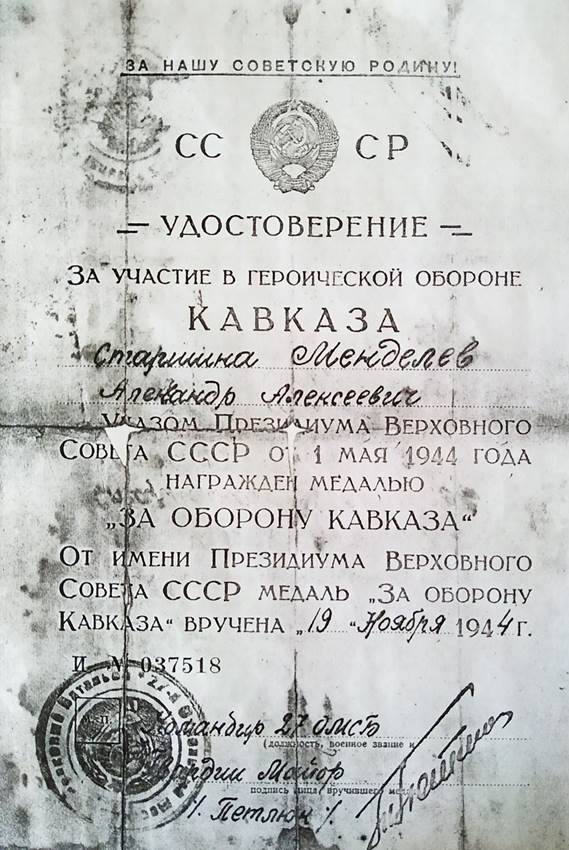 ЗА НАШУ СОВЕТСКУЮ РОДИНУ!
СС СР
УДОСТОВЕРЕНИЕ
ЗА УЧАСТИЕ В ГЕРОИЧЕСКОЙ ОБОРОНЕ
КАВКАЗА
Старшина Менделев
Александр Алексеевич
УКАЗОМ ПРЕЗИДИУМА ВЕРХОВНОГО
СОВЕТА СССР ОТ 1 МАЯ 1944 ГОДА
НАГРАЖДЕН МЕДАЛЬЮ
„ЗА ОБОРОНУ КАВКАЗА“
ОТ ИМЕНИ ПРЕЗИДИУМА ВЕРХОВНОГО
СОВЕТА СССР МЕДАЛЬ „ЗА ОБОРОНУ
КАВКАЗА“ ВРУЧЕНА „19“ Ноября 1944 г.
И № 037518
Командир 27 омсб
(должность, военное звание и
Гвардии Майор
подпись лица, вручившего
/. Петлюк /.